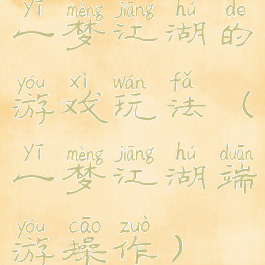 yī mèng jiāng hú de
一梦江湖的
yóu xì wán fǎ
游戏玩法（
yī mèng jiāng hú duān
一梦江湖端
yóu cāo zuò
游操作）